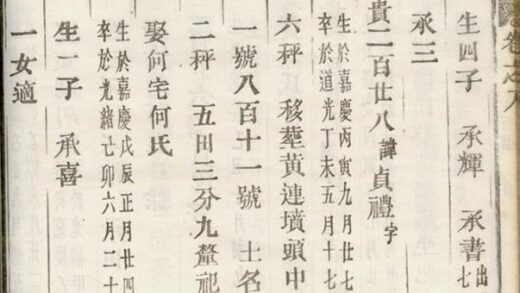 卷之八
生四子 承輝 承書出七
承三
貴二百廿八諱貞禮字
生於嘉慶丙寅九月廿七
卒於道光丁未五月十七
六秤 移葬黃連墳頭中
一號八百十一號 土名
二秤 五田三分九釐祀
娶何宅何氏
生於嘉慶戊辰正月廿四
卒於光緒己卯六月二十
生一子 承喜
一女適